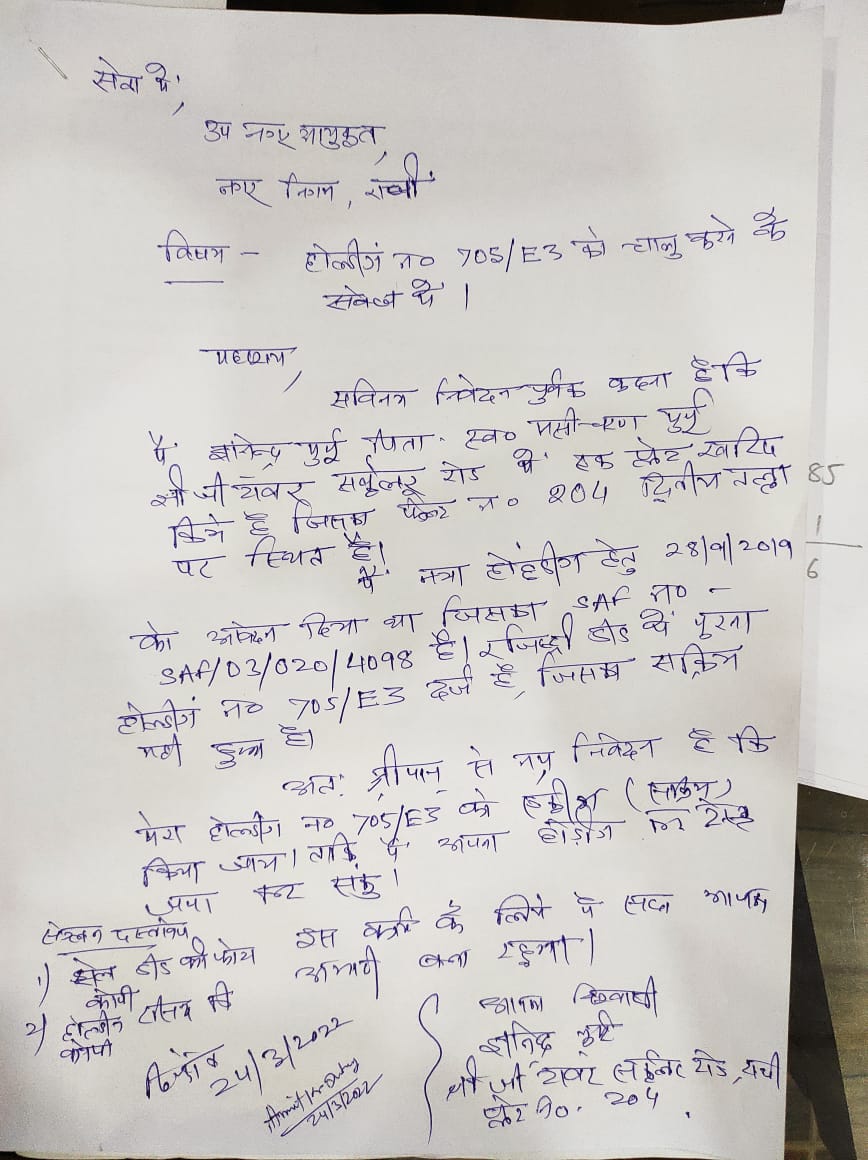 सेवा में,
उप नगर आयुक्त,
नगर निगम, रांची
विषय - होल्डींग नं० 705/E3 को चालु करने के
संबंध में।
महाशय,
सविनय निवेदन पुर्वक कहना है कि
मैं ज्ञानेन्द्र मुर्मू पिता स्व० मसी चरण मुर्मू
श्री जी टॉवर सर्कुलर रोड में एक फ्लेट खरिद
किये है जिसका फ्लेट न० 204 द्वितीय तल्ला
पर स्थित है।
मैं नया होल्डींग हेतु 28/9/2019
को आवेदन दिया था जिसका SAF no -
SAF/03/020/4098 है। रजिस्ट्री डीड में पुराना
होल्डींग न० 705/E3 दर्ज है, जिसका सक्रिय
नही हुआ है।
अतः श्रीमान् से नम्र निवेदन है कि
मेरा होल्डींग न० 705/E3 को (सक्रिय)
किया जाय। ताकि मैं अपना होल्डींग
जमा कर सकुं।
इस कार्य के लिये मैं सदा आपका
आभारी बना रहुंगा।
संलग्न दस्तावेज
1) सेल डीड की फोटो
कोपी
2) होल्डींग रसिद कि
कोपी
दिनांक
24/3/2022
24/3/2022
आपका विश्वासी
श्री जी टावर सर्कुलर रोड, रांची
फ्लेट no. 204.
85
1
6